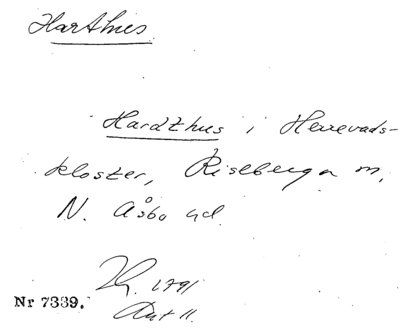 Harthus
Hardthus i Herrevads-
kloster, Riseberga sn,
N. Åsbo hd.
1791
Akt 11.
Nr 7339.